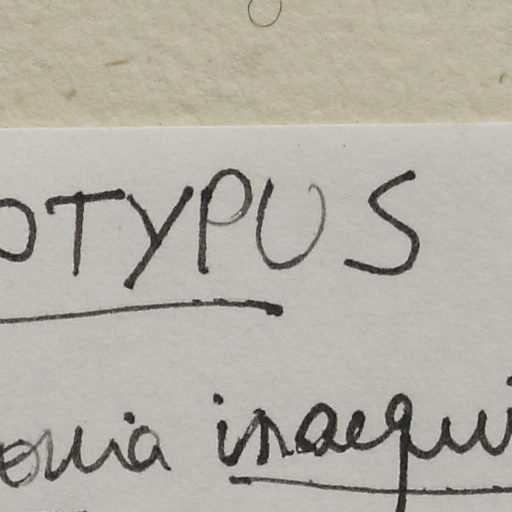 OTYPUS
onia inaequi